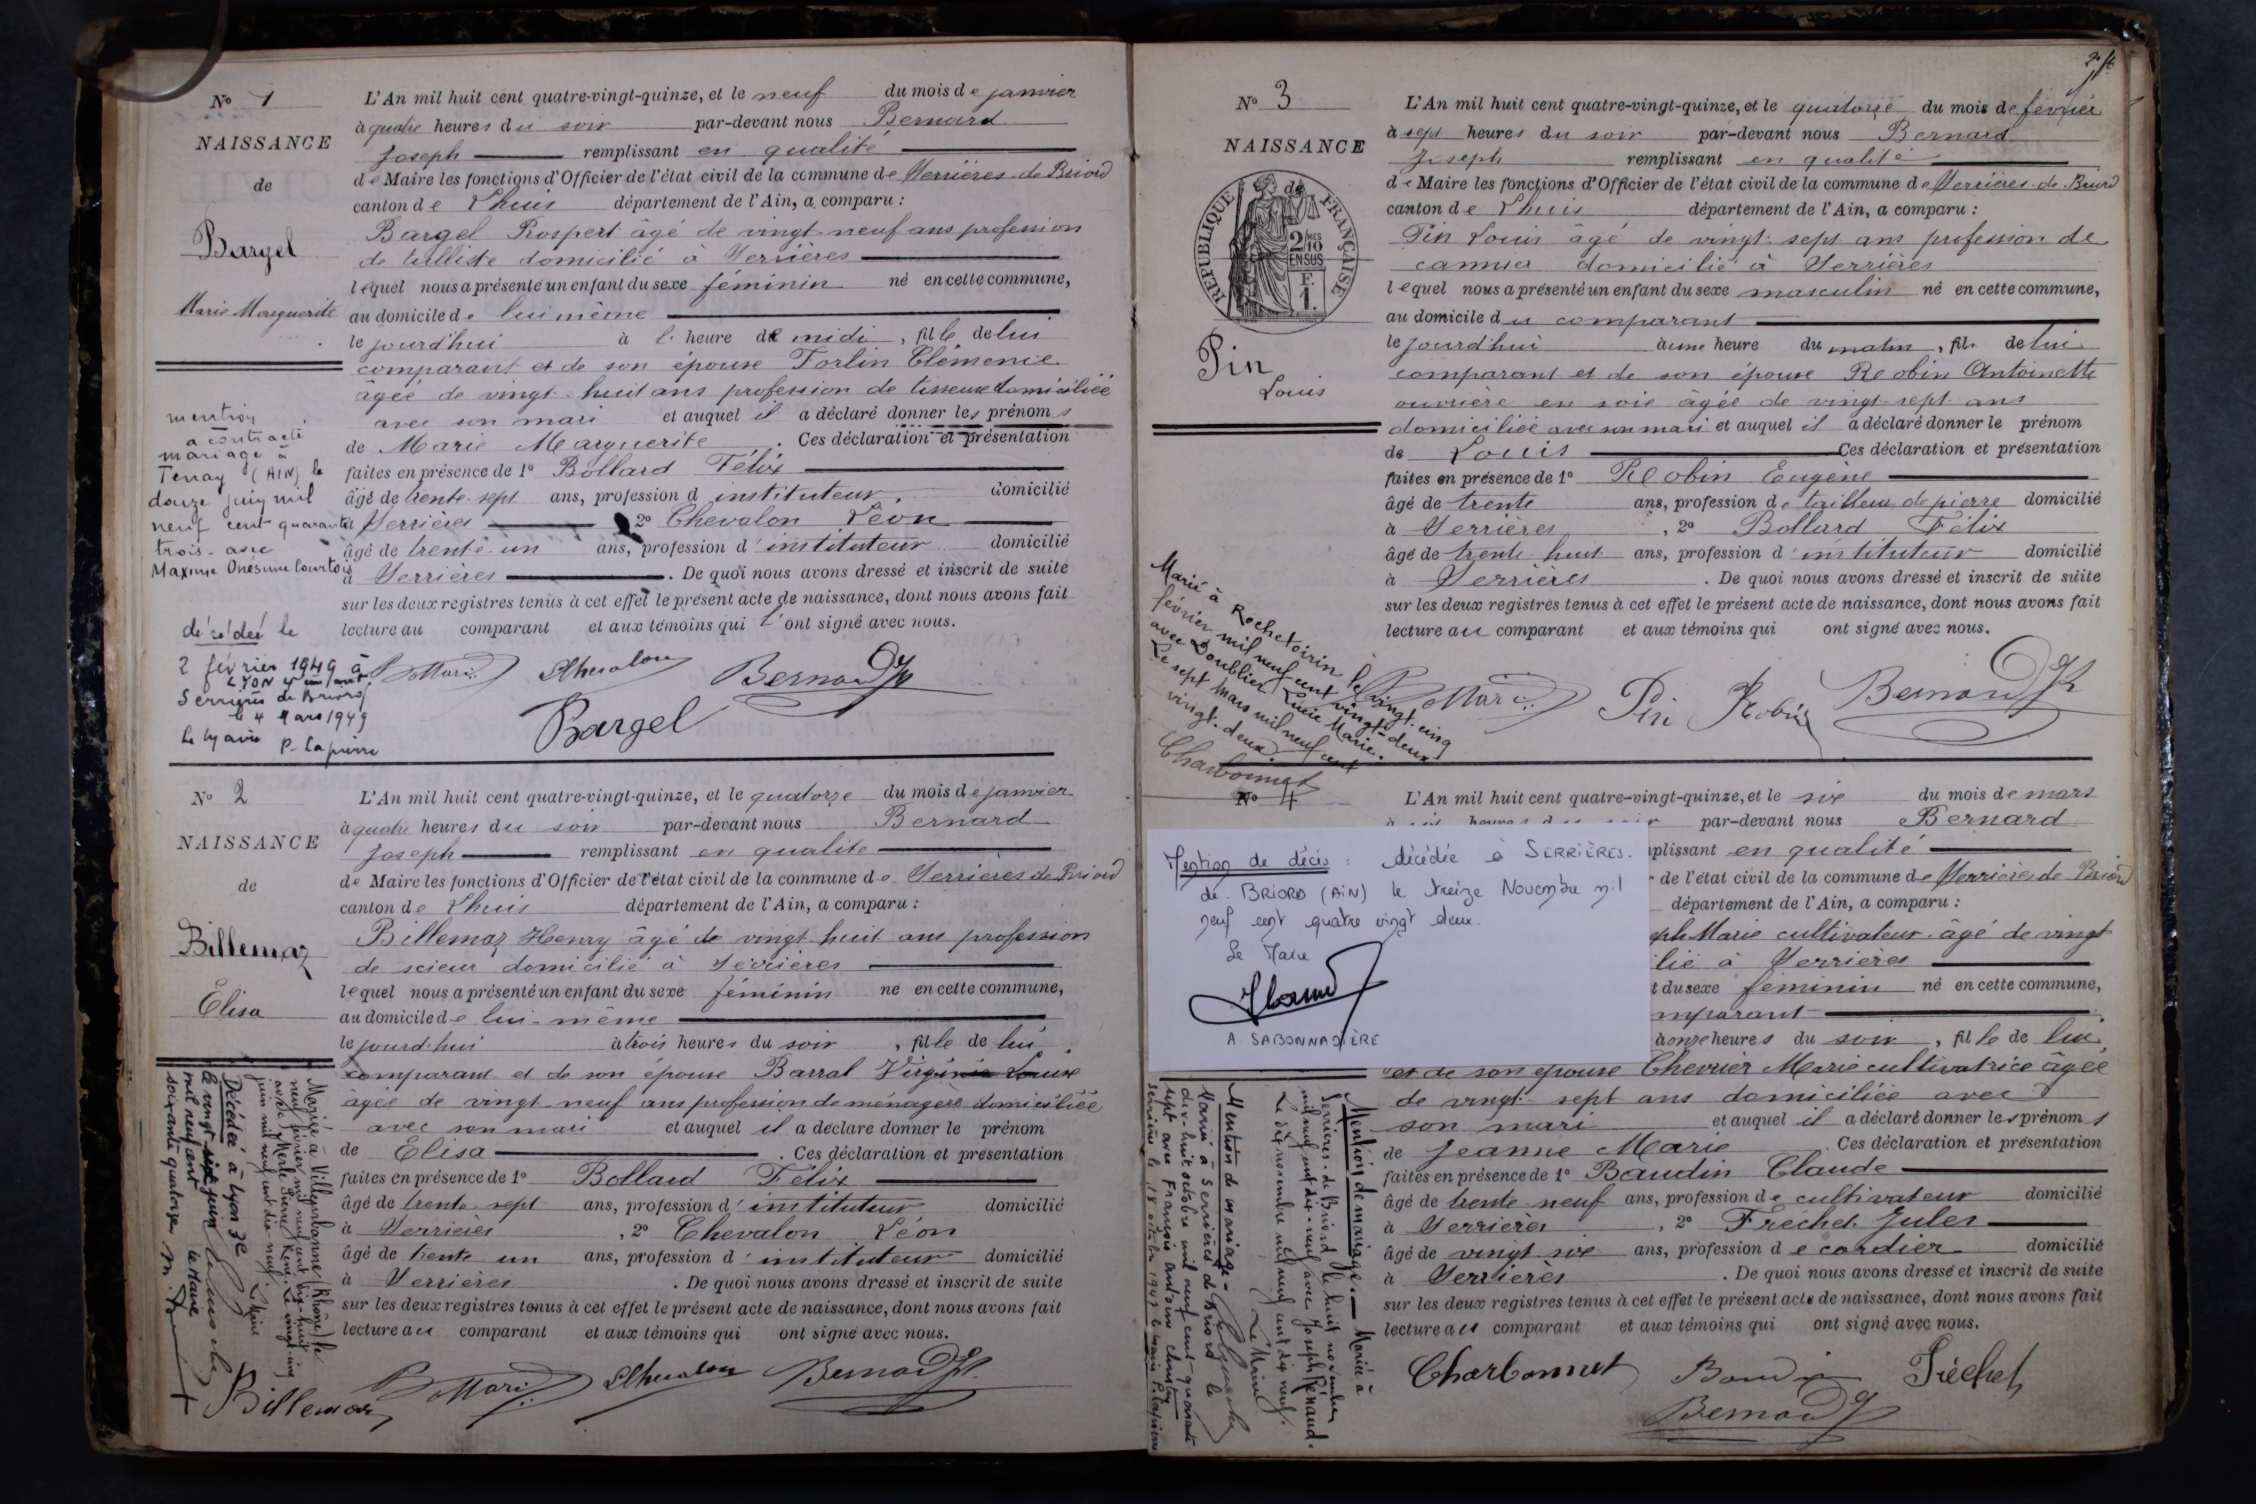 No 1
NAISSANCE
de
Bargel
Marie Marguerite
L'An mil huit cent quatre-vingt-quinze, et le neuf du mois de janvier
à quatre heures du soir par-devant nous Bernard
Joseph remplissant en qualité
de Maire les fonctions d'Officier de l'état civil de la commune de Serrières de Briord
canton de Lhuis département de l'Ain, a comparu :
Bargel Prospert âgé de vingt neuf ans profession
de tulliste domicilié à Serrières
lequel nous a présenté un enfant du sexe féminin né en cette commune,
au domicile de lui même
le jourd'hui à l' heure de midi, fille de lui
comparant et de son épouse Torlin Clémence
âgée de vingt-huit ans profession de tisseuse domiciliée
avec son mari et auquel il a déclaré donner les prénoms
de Marie Marguerite. Ces déclaration et présentation
faites en présence de 1o Bollard Félix
âgé de trente-sept ans, profession d instituteur, domicilié
à Serrières 2o Chevalon Léon
âgé de trente-un ans, profession d'instituteur domicilié
à Serrières. De quoi nous avons dressé et inscrit de suite
sur les deux registres tenus à cet effet le présent acte de naissance, dont nous avons fait
lecture au comparant et aux témoins qui l'ont signé avec nous.
mention
a contracté
mariage à
Tenay (AIN) le
douze juin mil
neuf cent quarante
trois - avec
Maxime Onésime Courtois
décédée le
2 février 1949 à
LYON
Serrières de Briord
le 4 Mars 1949
P. Lapierre
Chevalon Bernard
Bargel
No 2
NAISSANCE
de
Billemaz
Elisa
L'An mil huit cent quatre-vingt-quinze, et le quatorze du mois de janvier
à quatre heures du soir par-devant nous Bernard
Joseph remplissant en qualité
de Maire les fonctions d'Officier de l'état civil de la commune de Serrières de Briord
canton de Lhuis département de l'Ain, a comparu :
Billemaz Henry âgé de vingt huit ans profession
de scieur domicilié à Serrières
lequel nous a présenté un enfant du sexe féminin né en cette commune,
au domicile de lui-même
le jourd'hui à trois heures du soir, fille de lui
comparant et de son épouse Barral Virginie Louise
âgée de vingt-neuf ans profession de ménagère domiciliée
avec son mari et auquel il a déclaré donner le prénom
de Elisa. Ces déclaration et présentation
faites en présence de 1o Bollard Félix
âgé de trente-sept ans, profession d'instituteur domicilié
à Serrières, 2o Chevalon Léon
âgé de trente un ans, profession d'instituteur domicilié
à Serrières. De quoi nous avons dressé et inscrit de suite
sur les deux registres tenus à cet effet le présent acte de naissance, dont nous avons fait
lecture au comparant et aux témoins qui ont signé avec nous.
Mariée à Villeurbanne (Rhône) le
neuf février mil neuf cent dix-huit
avec Merle Pierre René. Le vingt-cinq
juin mil neuf cent dix-neuf. Le Maire
Décédée à Lyon 3e
le vingt-six juin
mil neuf cent Le Maire
soixante quatorze
Billemaz Chevalon Bernard
No 3
NAISSANCE
de
RÉPUBLIQUE FRANÇAISE
2/10 MES
EN SUS
F.
1.
Pin
Louis
L'An mil huit cent quatre-vingt-quinze, et le quatorze du mois de février
à sept heures du soir par-devant nous Bernard
Joseph remplissant en qualité
de Maire les fonctions d'Officier de l'état civil de la commune de Serrières de Briord
canton de Lhuis département de l'Ain, a comparu :
Pin Louis âgé de vingt-sept ans profession de
cannier domicilié à Serrières
lequel nous a présenté un enfant du sexe masculin né en cette commune,
au domicile du comparant
le jourd'hui à une heure du matin, fils de lui
comparant et de son épouse Robin Antoinette
ouvrière en soie âgée de vingt-sept ans
domiciliée avec son mari et auquel il a déclaré donner le prénom
de Louis Ces déclaration et présentation
faites en présence de 1o Robin Eugène
âgé de trente ans, profession de tailleur de pierre domicilié
à Serrières, 2o Bollard Félix
âgé de trente huit ans, profession d'instituteur domicilié
à Serrières. De quoi nous avons dressé et inscrit de suite
sur les deux registres tenus à cet effet le présent acte de naissance, dont nous avons fait
lecture au comparant et aux témoins qui ont signé avec nous.
Marié à Rochetoirin le vingt-cinq
février mil neuf cent vingt-deux
avec Doublier Lucie Marie.
Le sept mars mil neuf cent
vingt-deux.
Charbonnet
Pin Robin Bernard
No 4
L'An mil huit cent quatre-vingt-quinze, et le six du mois de mars
par-devant nous Bernard
mplissant en qualité
de l'état civil de la commune de Serrières de Briord
département de l'Ain, a comparu :
eph Marie cultivateur âgé de vingt
lié à Serrières
t du sexe féminin né en cette commune,
mparant
à onze heures du soir, fille de lui
et de son épouse Chevrier Marie cultivatrice âgée
de vingt sept ans domiciliée avec
son mari et auquel il a déclaré donner les prénoms
de Jeanne Marie. Ces déclaration et présentation
faites en présence de 1o Baudin Claude
âgé de trente neuf ans, profession de cultivateur domicilié
à Serrières, 2o Fréchet Jules
âgé de vingt six ans, profession de cordier domicilié
à Serrières. De quoi nous avons dressé et inscrit de suite
sur les deux registres tenus à cet effet le présent acte de naissance, dont nous avons fait
lecture au comparant et aux témoins qui ont signé avec nous.
Mention de décès : décédée à SERRIÈRES.
de. BRIORD (AIN) le treize Novembre mil
neuf cent quatre vingt deux.
Le Maire
A SABONNADIÈRE
Mention de mariage. Mariée à
Serrières-de-Briord le huit novembre
mil neuf cent dix-neuf avec Joseph Rénaud.
Le dix novembre mil neuf cent dix neuf.
Le Maire
Mention de mariage -
Mariée à Serrières de Briord le
dix-huit octobre mil neuf cent-quarante
sept avec François Antoine
Serrières le 18 octobre 1947 le maire P. Lapierre
Charbonnet Baudin Fréchet
Bernard